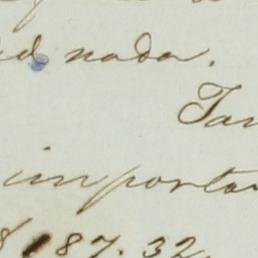 nada.
Tan
importan
87. 32